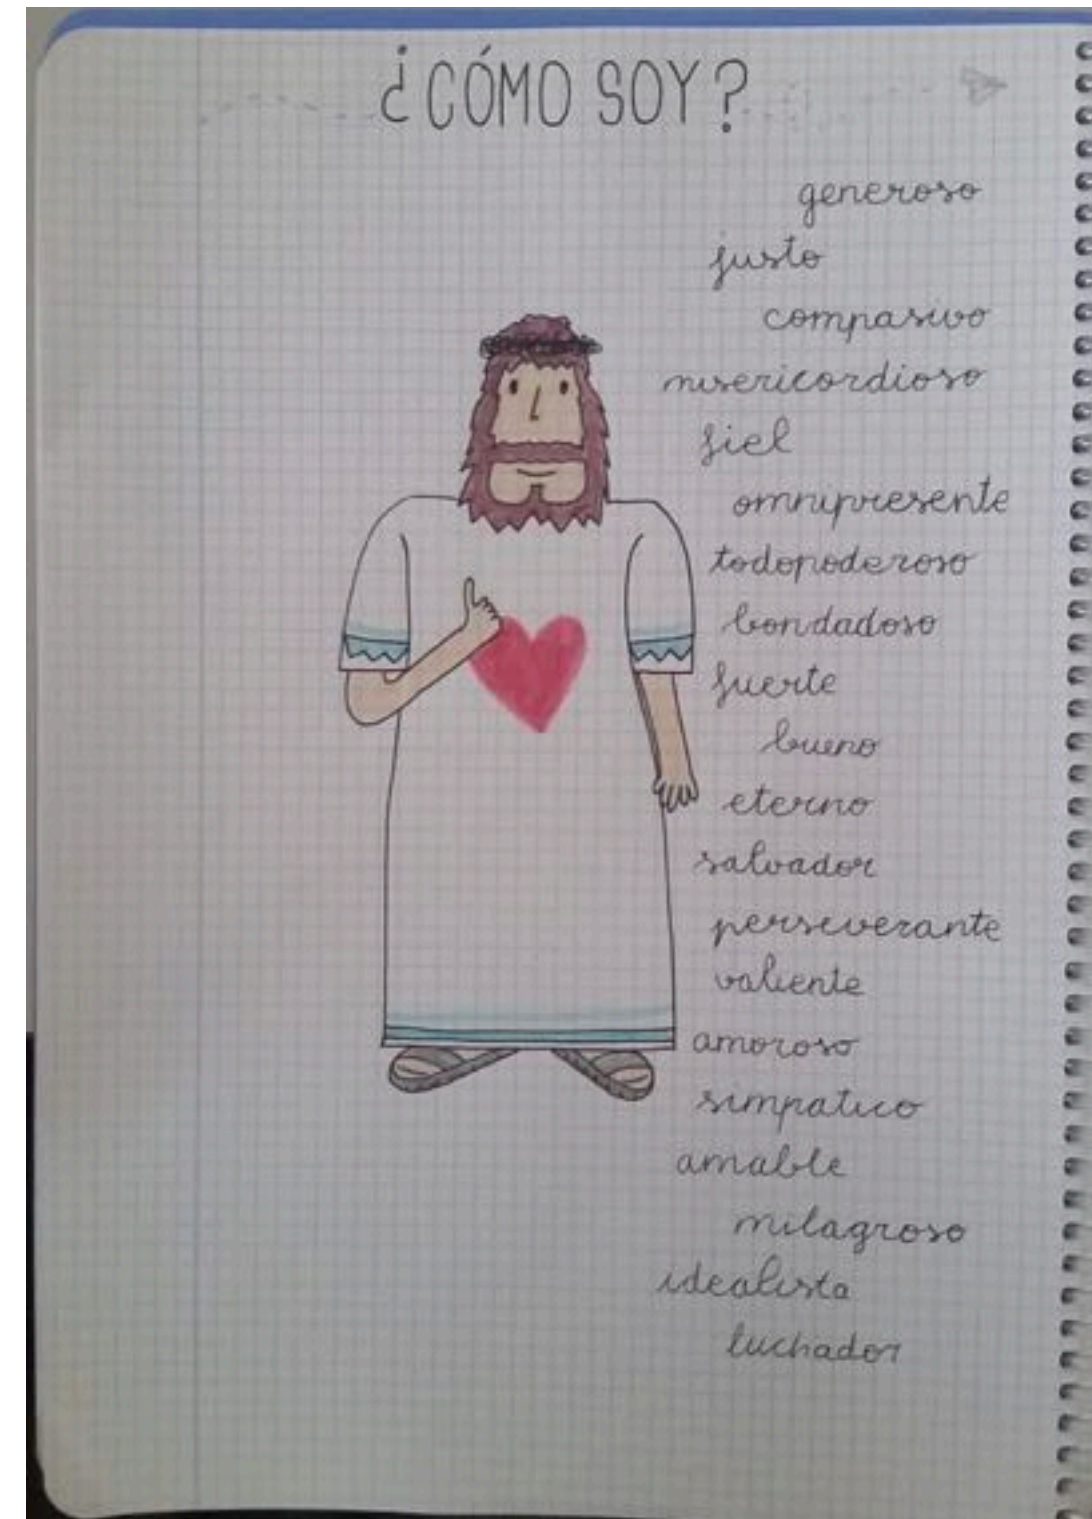 ¿CÓMO SOY?
generoso
justo
compasivo
misericordioso
fiel
omnipresente
todopoderoso
bondadoso
fuerte
bueno
eterno
salvador
perseverante
valiente
amoroso
simpatico
amable
milagroso
idealista
luchador